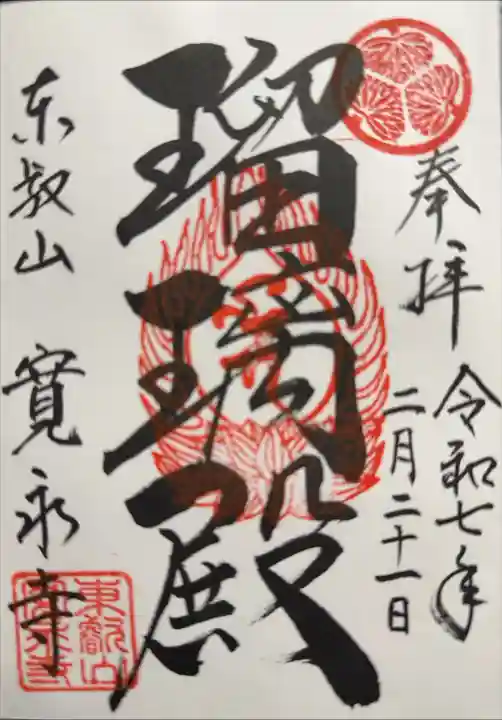 奉拝
令和七年
二月二十一日
瑠璃殿
東叡山 寛永寺
東叡山
寛永寺